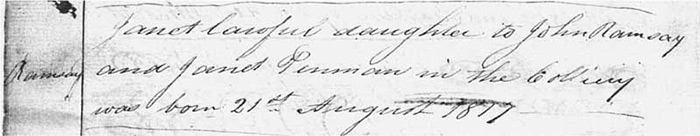 Janet lawful daughter to John Ramsay
Ramsay
and Janet Penman in the Colliery
was born 21st August 1817